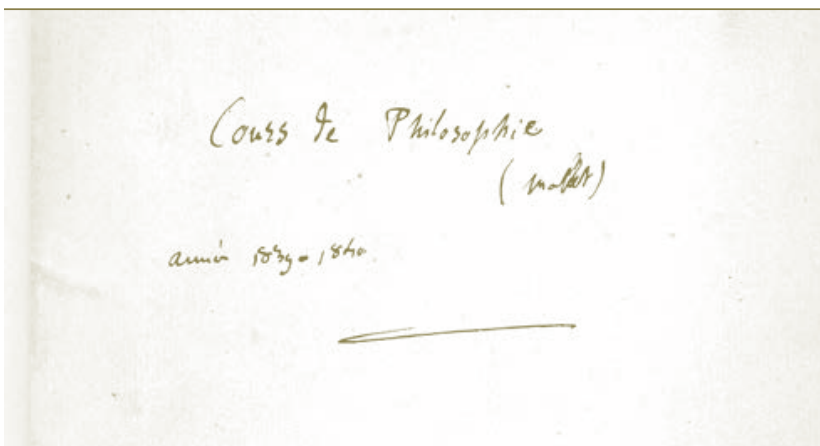 Cours de Philosophie
(Mallet)
année 1839-1840.